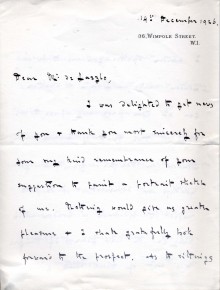 14th December 1926.
WIMPOLE STREET.
W.1.
Dear Mr de Laszlo,
I was delighted to get news
of you & thank you most sincerely for
your very kind remembrance of your
suggestion to paint a portrait sketch
of me. Nothing would give me greater
pleasure & I shall gratefully look
forward to the prospect. As to sittings